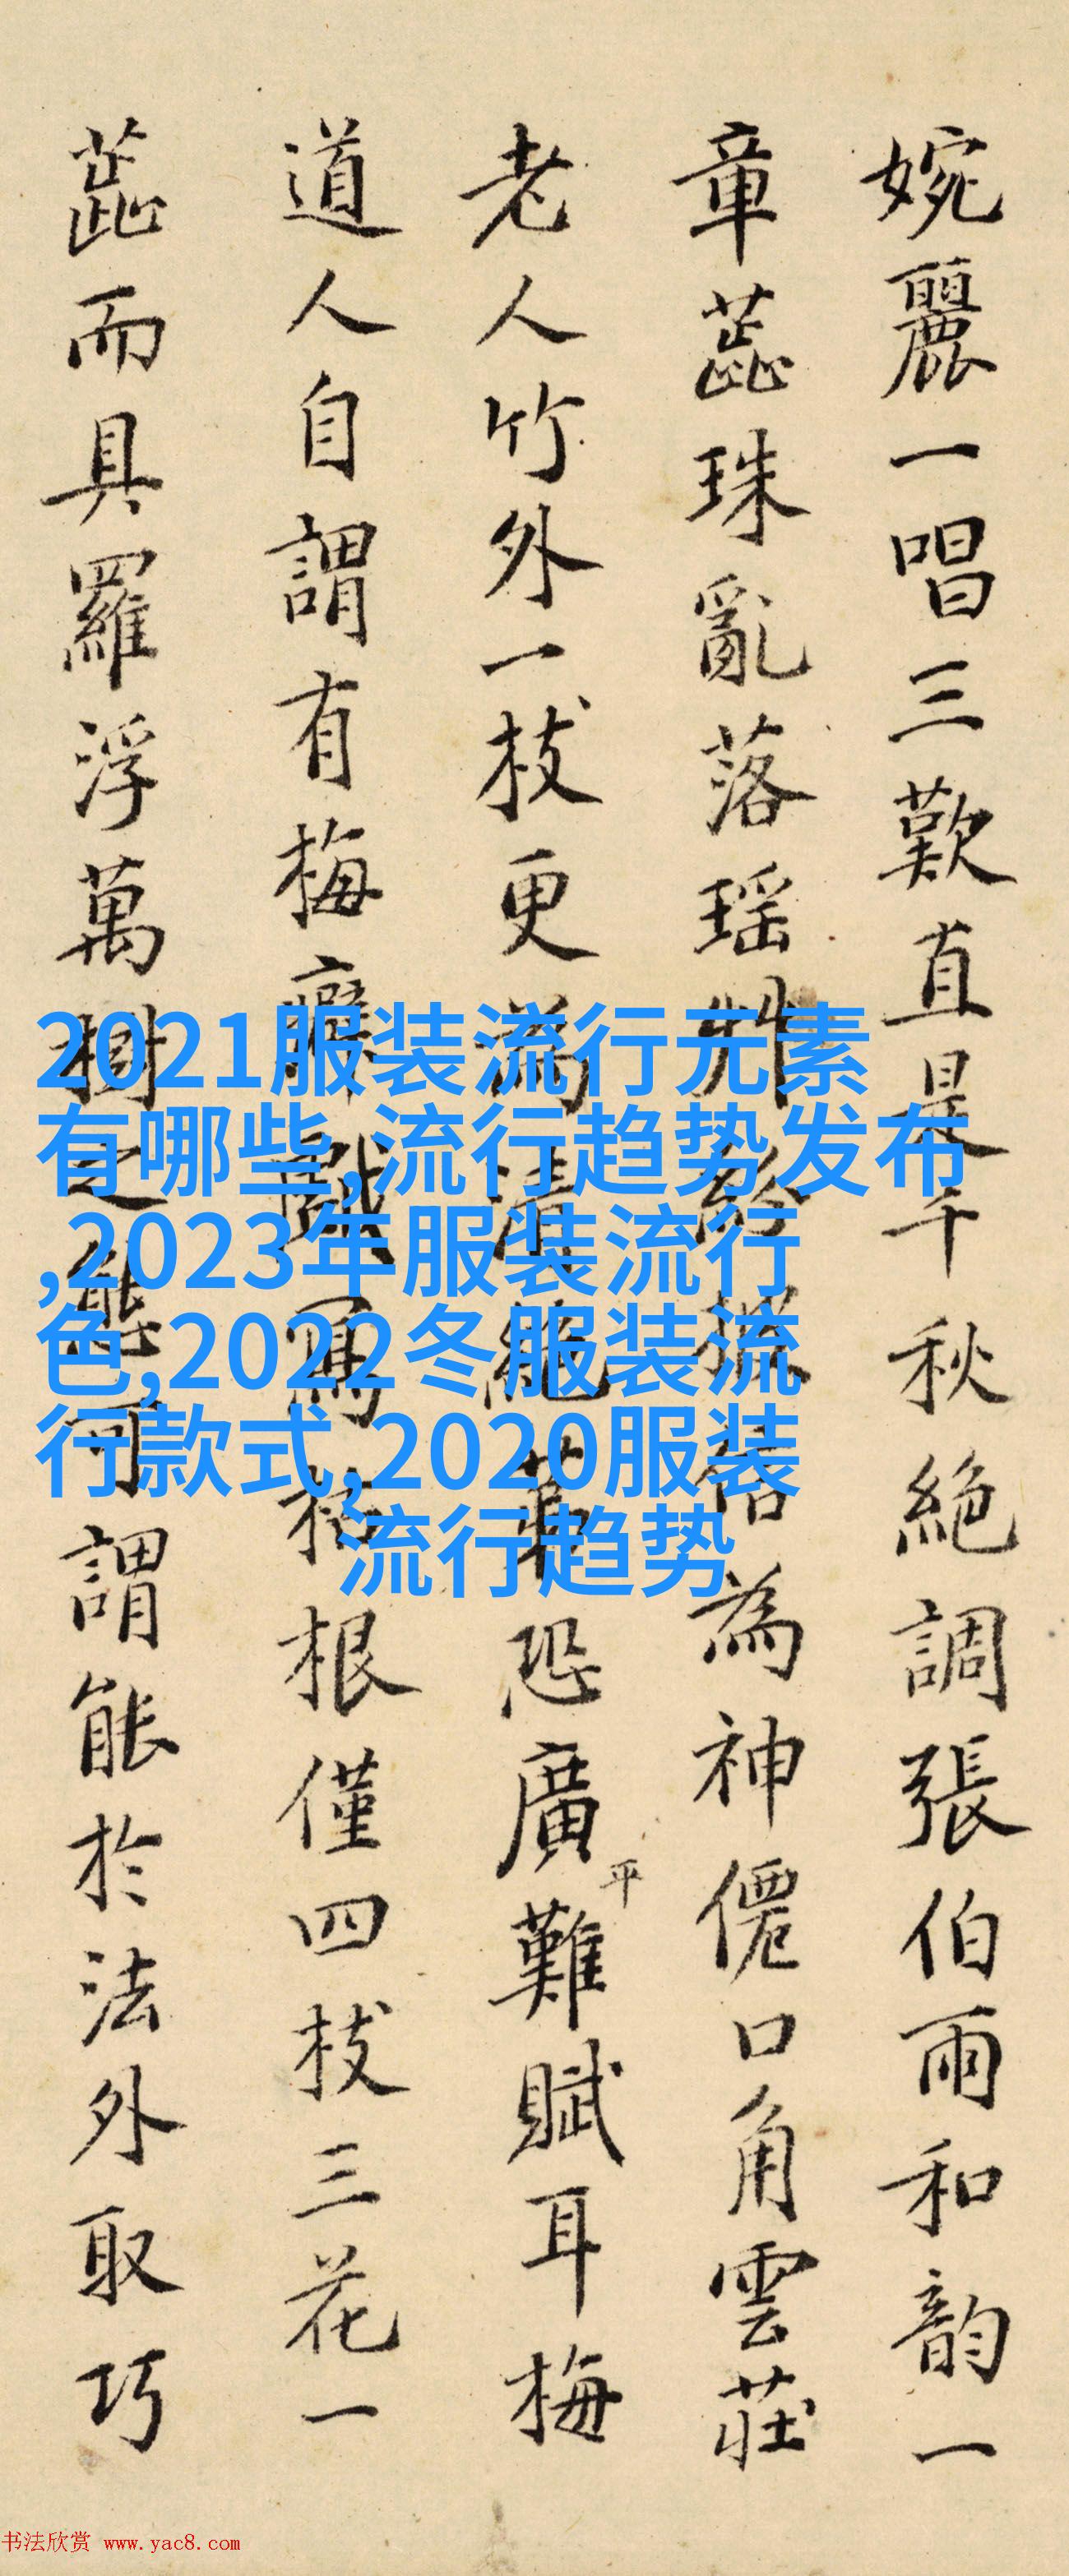 婉麗一唱三歎直是千秋絕調張伯雨和韵一
章蕋珠亂落瑶為神僊口角雲莊
老人竹外一枝更為清絕恐廣平難賦耳梅
道人自謂有梅癖戲寫根僅四枝三花一
蕋而具羅浮萬樹之態可謂能於法外取巧
2021服装流行元素
有哪些,流行趋势发布
,2023年服装流行
色,2022冬服装流
行款式,2020服装
流行趋势
书法欣赏 www.yac8.com